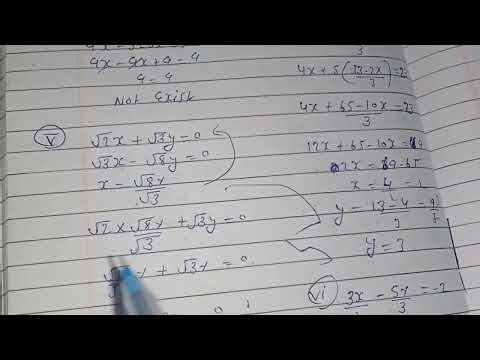 9x - 9x + 9 - 9
9 - 9
Not Exist
(v) √2x + √3y = 0
√3x - √8y = 0
x - √8y/√3
√2 x √8y/√3 + √3y = 0
y + √3y = 0
3
4x + 5(13-2x/3) = 23
4x + 65-10x/3 = 23
12x + 65 - 10x = 69
2x = 69-65
x = 4/2 =
y - 13-4/3 - 9/3
y = 3
vi) 3x - 5y/3 = -2